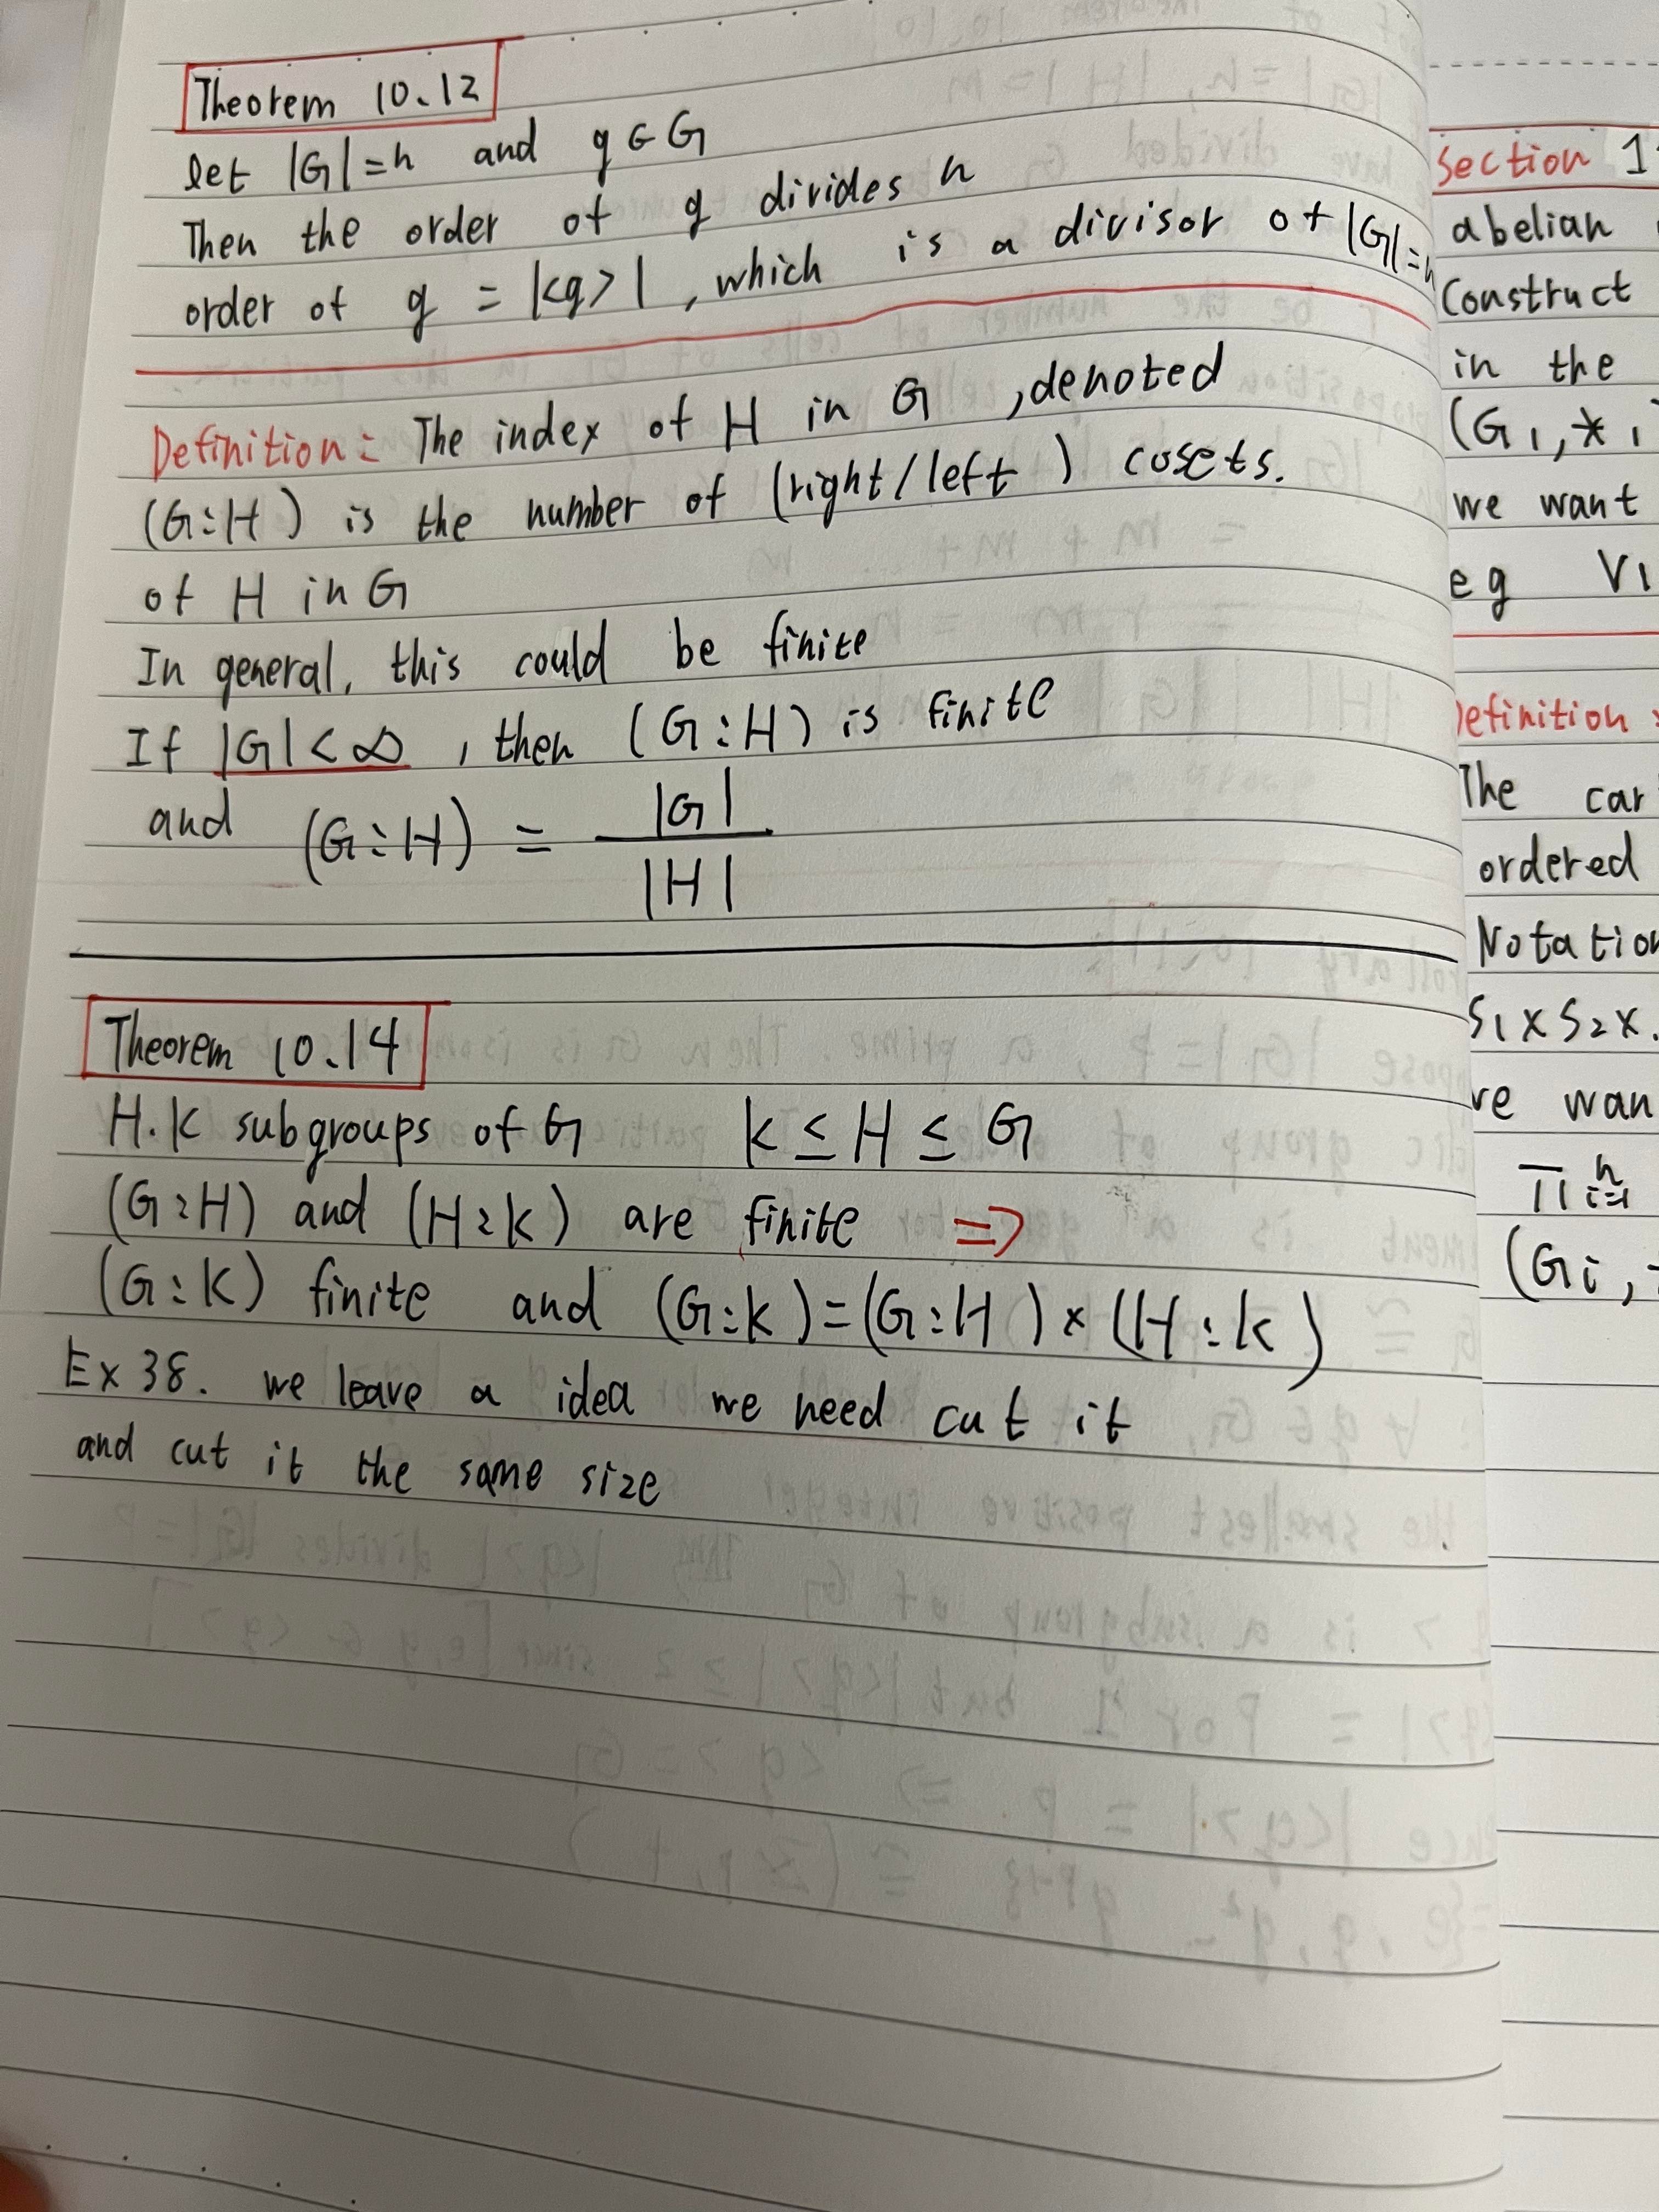 Theorem 10.12
let |G|=n and g∈G
Then the order of g divides n
order of g = |<g>|, which is a divisor of |G|=n
Definition: The index of H in G, denoted
(G:H) is the number of (right/left) cosets.
of H in G
In general, this could be finite
If |G|<∞, then (G:H) is finite
and (G:H) = |G|
|H|
Theorem 10.14
H.K subgroups of G K ≤ H ≤ G
(G:H) and (H:K) are finite ⇒
(G:K) finite and (G:K)=(G:H)×(H:K)
Ex 38. we leave a idea we need cut it
and cut it the same size
Section
abelian
Construct
in the
(G1,*1
we want
eg
Definition:
The
ordered
S1×S2×.
∏ n i=1
(Gi,